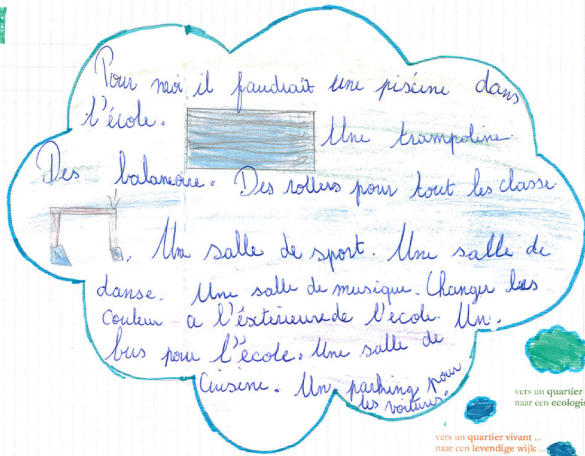 Pour moi il faudrait une piscine dans
l'école.
Une trampoline.
Des balancoire. Des rollers pour tout les classe.
Une salle de sport. Une salle de
danse. Une salle de musique. Changer les
couleur a l'éxterieure de l'école. Un.
bus pour l'école. Une salle de
Cuisine. Un parking pour
les voitures.
vers un quartier
naar een ecologi
vers un quartier vivant ...
naar een levendige wijk ...